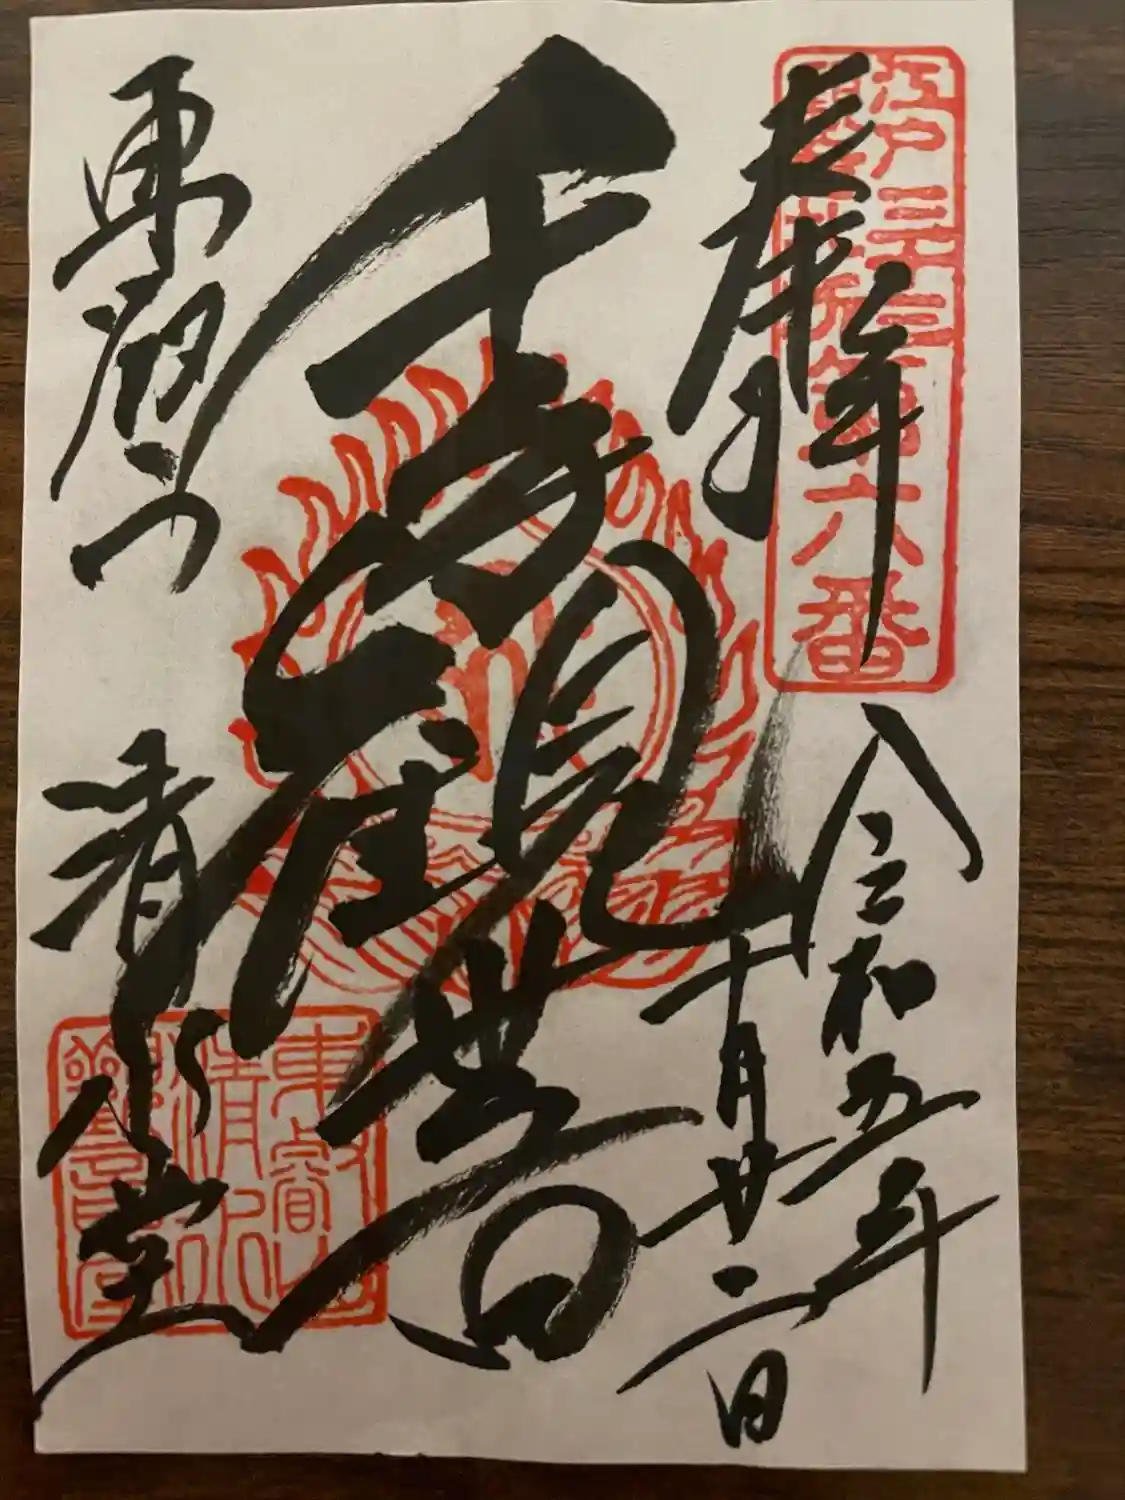 奉拝
令和五年
十月廿二日
千手観世音
東叡山
清水堂
江戸三十三
観音札所第六番
東叡山
清水
観音堂